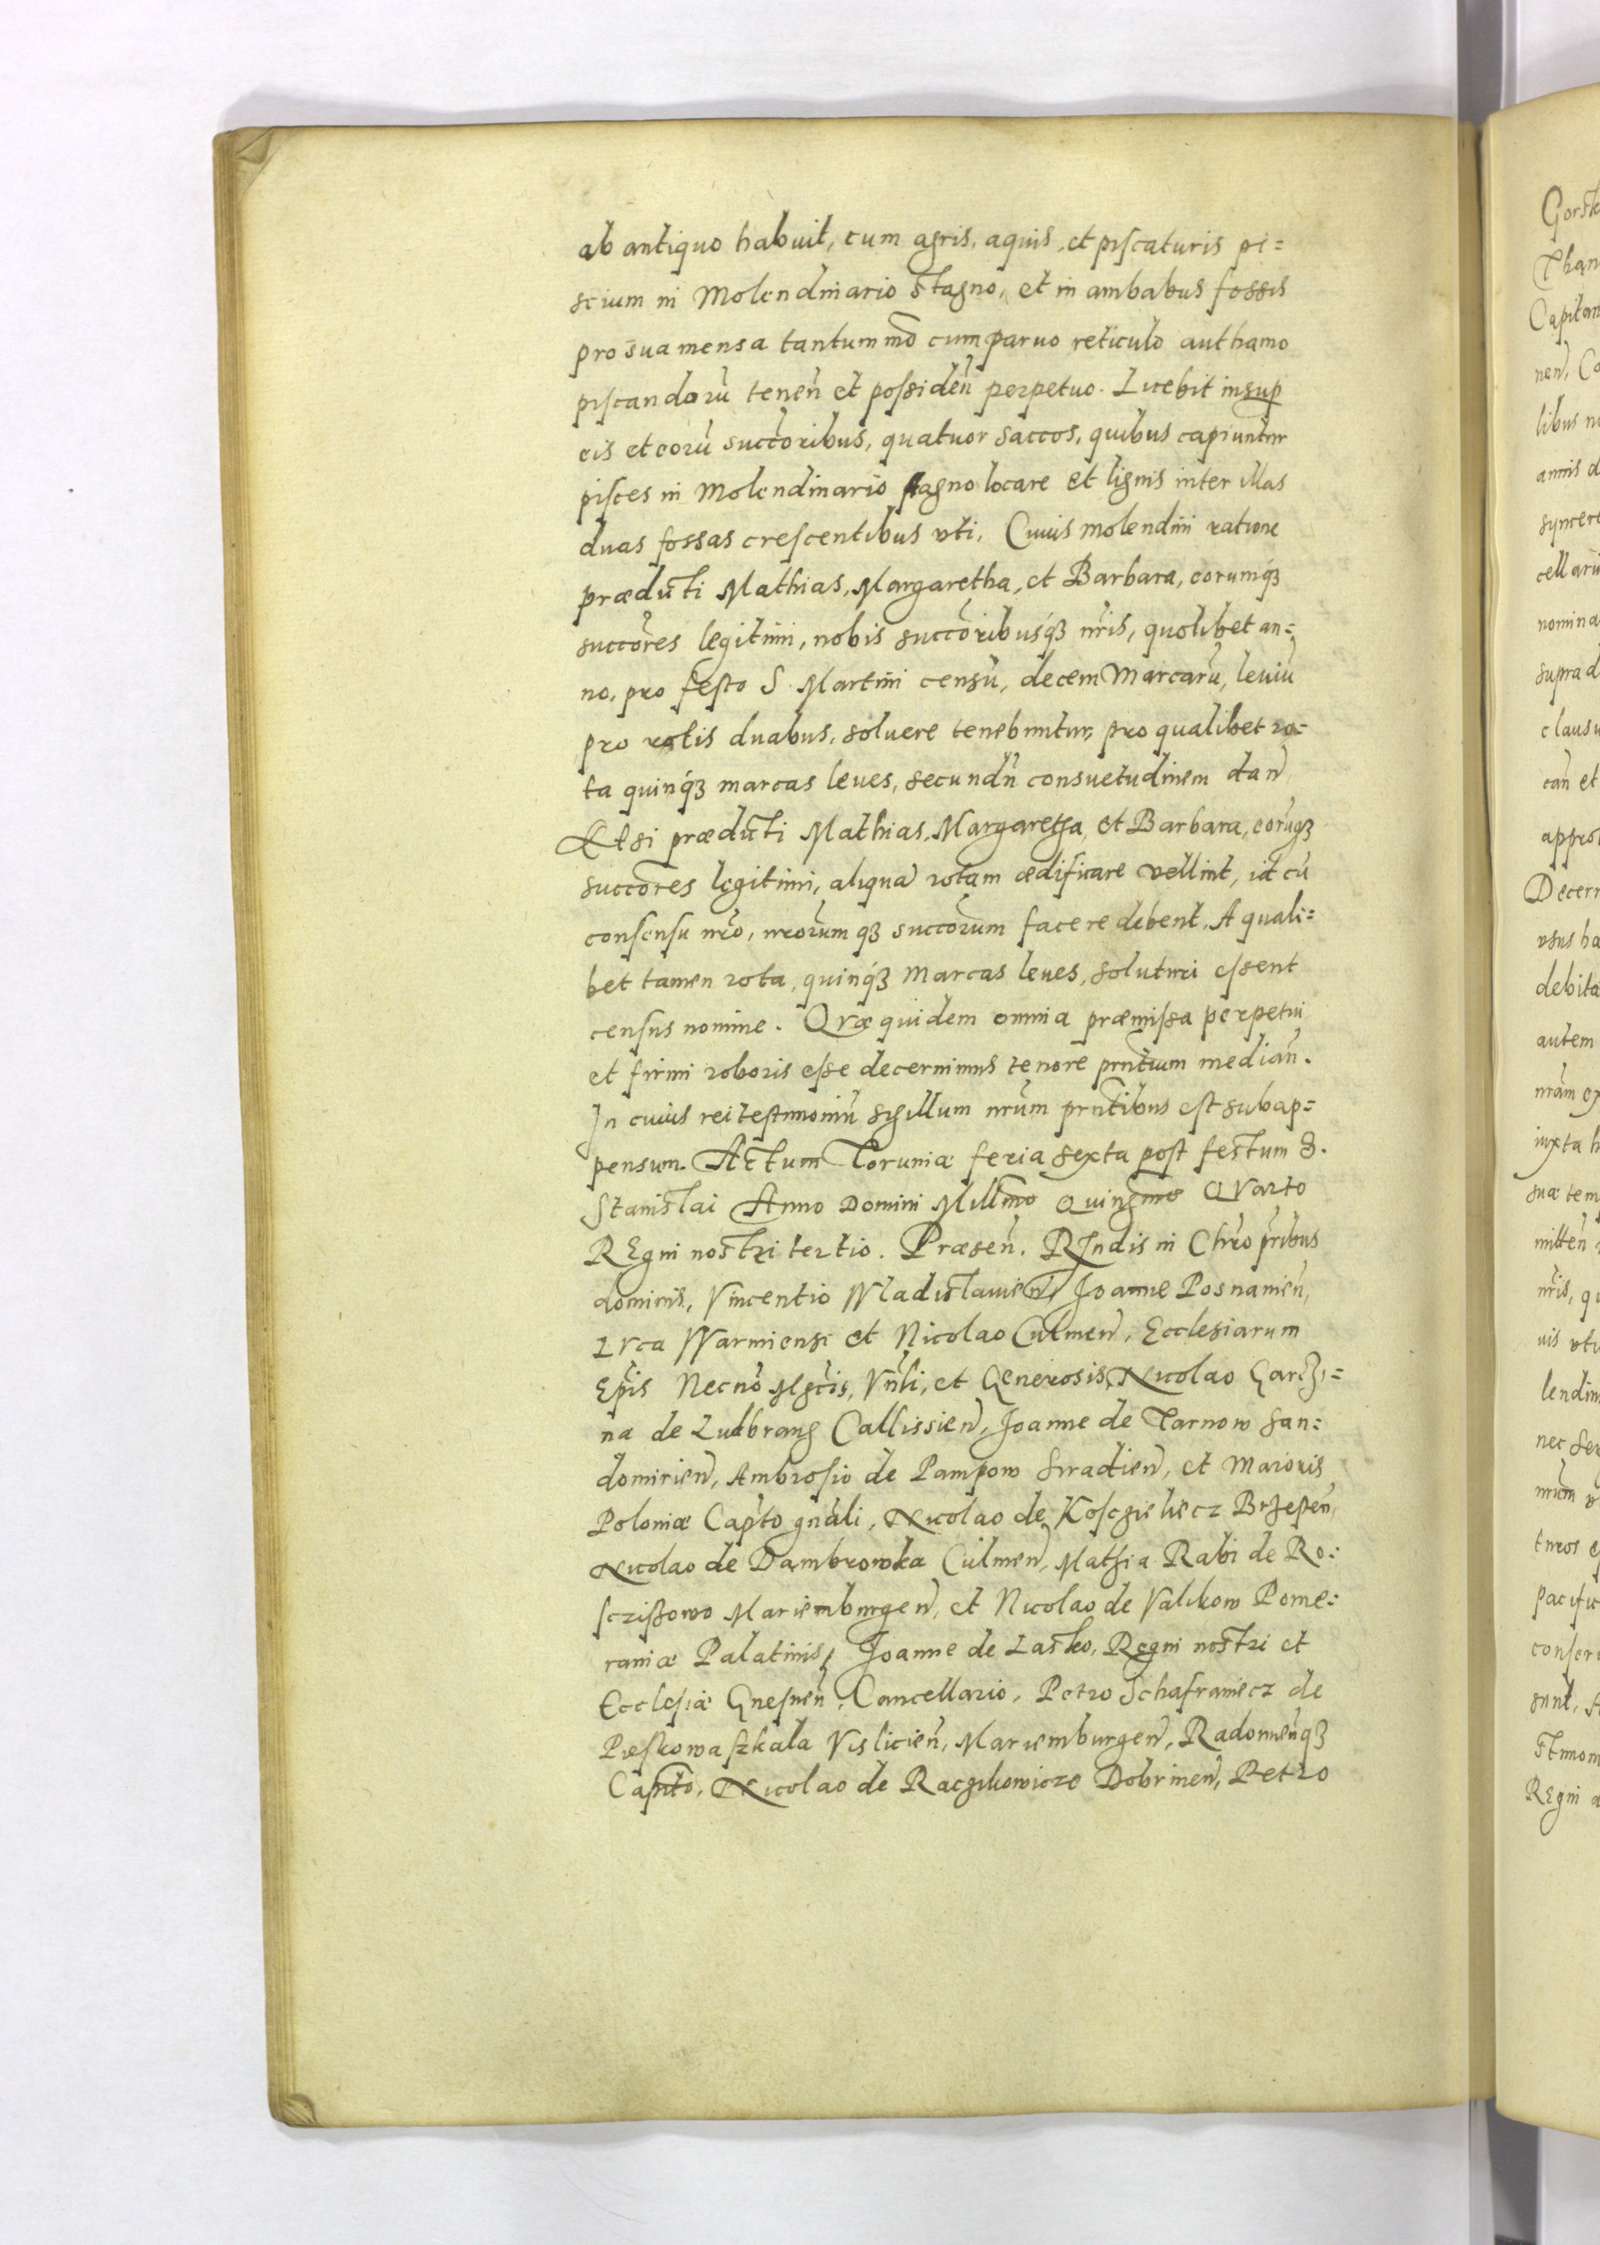 ab antiquo habuit, cum agris, aquis, et piscaturis pi=
scium in Molendinario stagno, et in ambabus fossis
pro sua mensa tantummō cum paruo reticulo aut hamo
piscandorū tenen̄ et possiden̄ perpetuo. Licebit insup
eis et eorū succōribus, quatuor saccos, quibus capiuntur
pisces in Molendinario stagno locare et lignis inter illas
duas fossas crescentibus vti, Cuius molendini ratione
prædūti Mathias, Margaretha, et Barbara, eorumq́ꝫ
succōres legitimi, nobis succōribusq́ꝫ nr̄is, quolibet an=
no, pro festo S. Martini censū, decem Marcarū, leuiū
pro rotis duabus, soluere tenebuntur, pro qualibet ro=
ta quinq́ꝫ marcas leues, secundū consuetudinem dan̄
Et si prædūti Mathias, Margaretha, et Barbara, eorūqꝫ
succōres legitimi, aliquā rotam ædificare vellint, id cū
consensu nr̄o, nr̄orumqꝫ succōrum facere debent. A quali=
bet tamen rota, quinq́ꝫ Marcas leues, soluturi essent
census nomine. Quæ quidem omnia præmissa perpetui
et firmi roboris esse decernimus tenore prn̄tium median̄.
In cuius rei testimoniū sigillum nr̄um prn̄tibus est subap=
pensum. Actum Toruniæ feria sexta post festum S.
Stanislai Anno Domini Millmō Quingmō Quarto
Regni nostri tertio. Præsen̄. Rn̄dis in Chr̄o pr̄ibus
dominis, Vincentio Wladislauien̄, Joanne Posnanien̄,
Luca Warmiensi et Nicolao Culmen̄, Ecclesiarum
Ep̄is Necnō Mgc̄is, Vn̄li, et Generosis, Nicolao Gardzi=
na de Ludbrang Callissien̄, Joanne de Tarnow San=
domirien̄, Ambrosio de Pampow Siradien̄, et Maioris
Poloniæ Cap̄to gn̄ali, Nicolao de Kosczielecz Brzesten̄,
Nicolao de Dambrowka Culmen̄, Mathia Rabi de Ro=
sczissowo Mariemburgen̄, et Nicolao de Valikow Pome=
raniæ Palatinis, Joanne de Lasko, Regni nostri et
Ecclesiæ Gnesnen̄, Cancellario, Petro Schafraniecz de
Pieskowaszkala Vislicien̄, Mariemburgen̄, Radomien̄qꝫ
Capn̄to, Nicolao de Raczikowicze Dobrinen̄, Petro